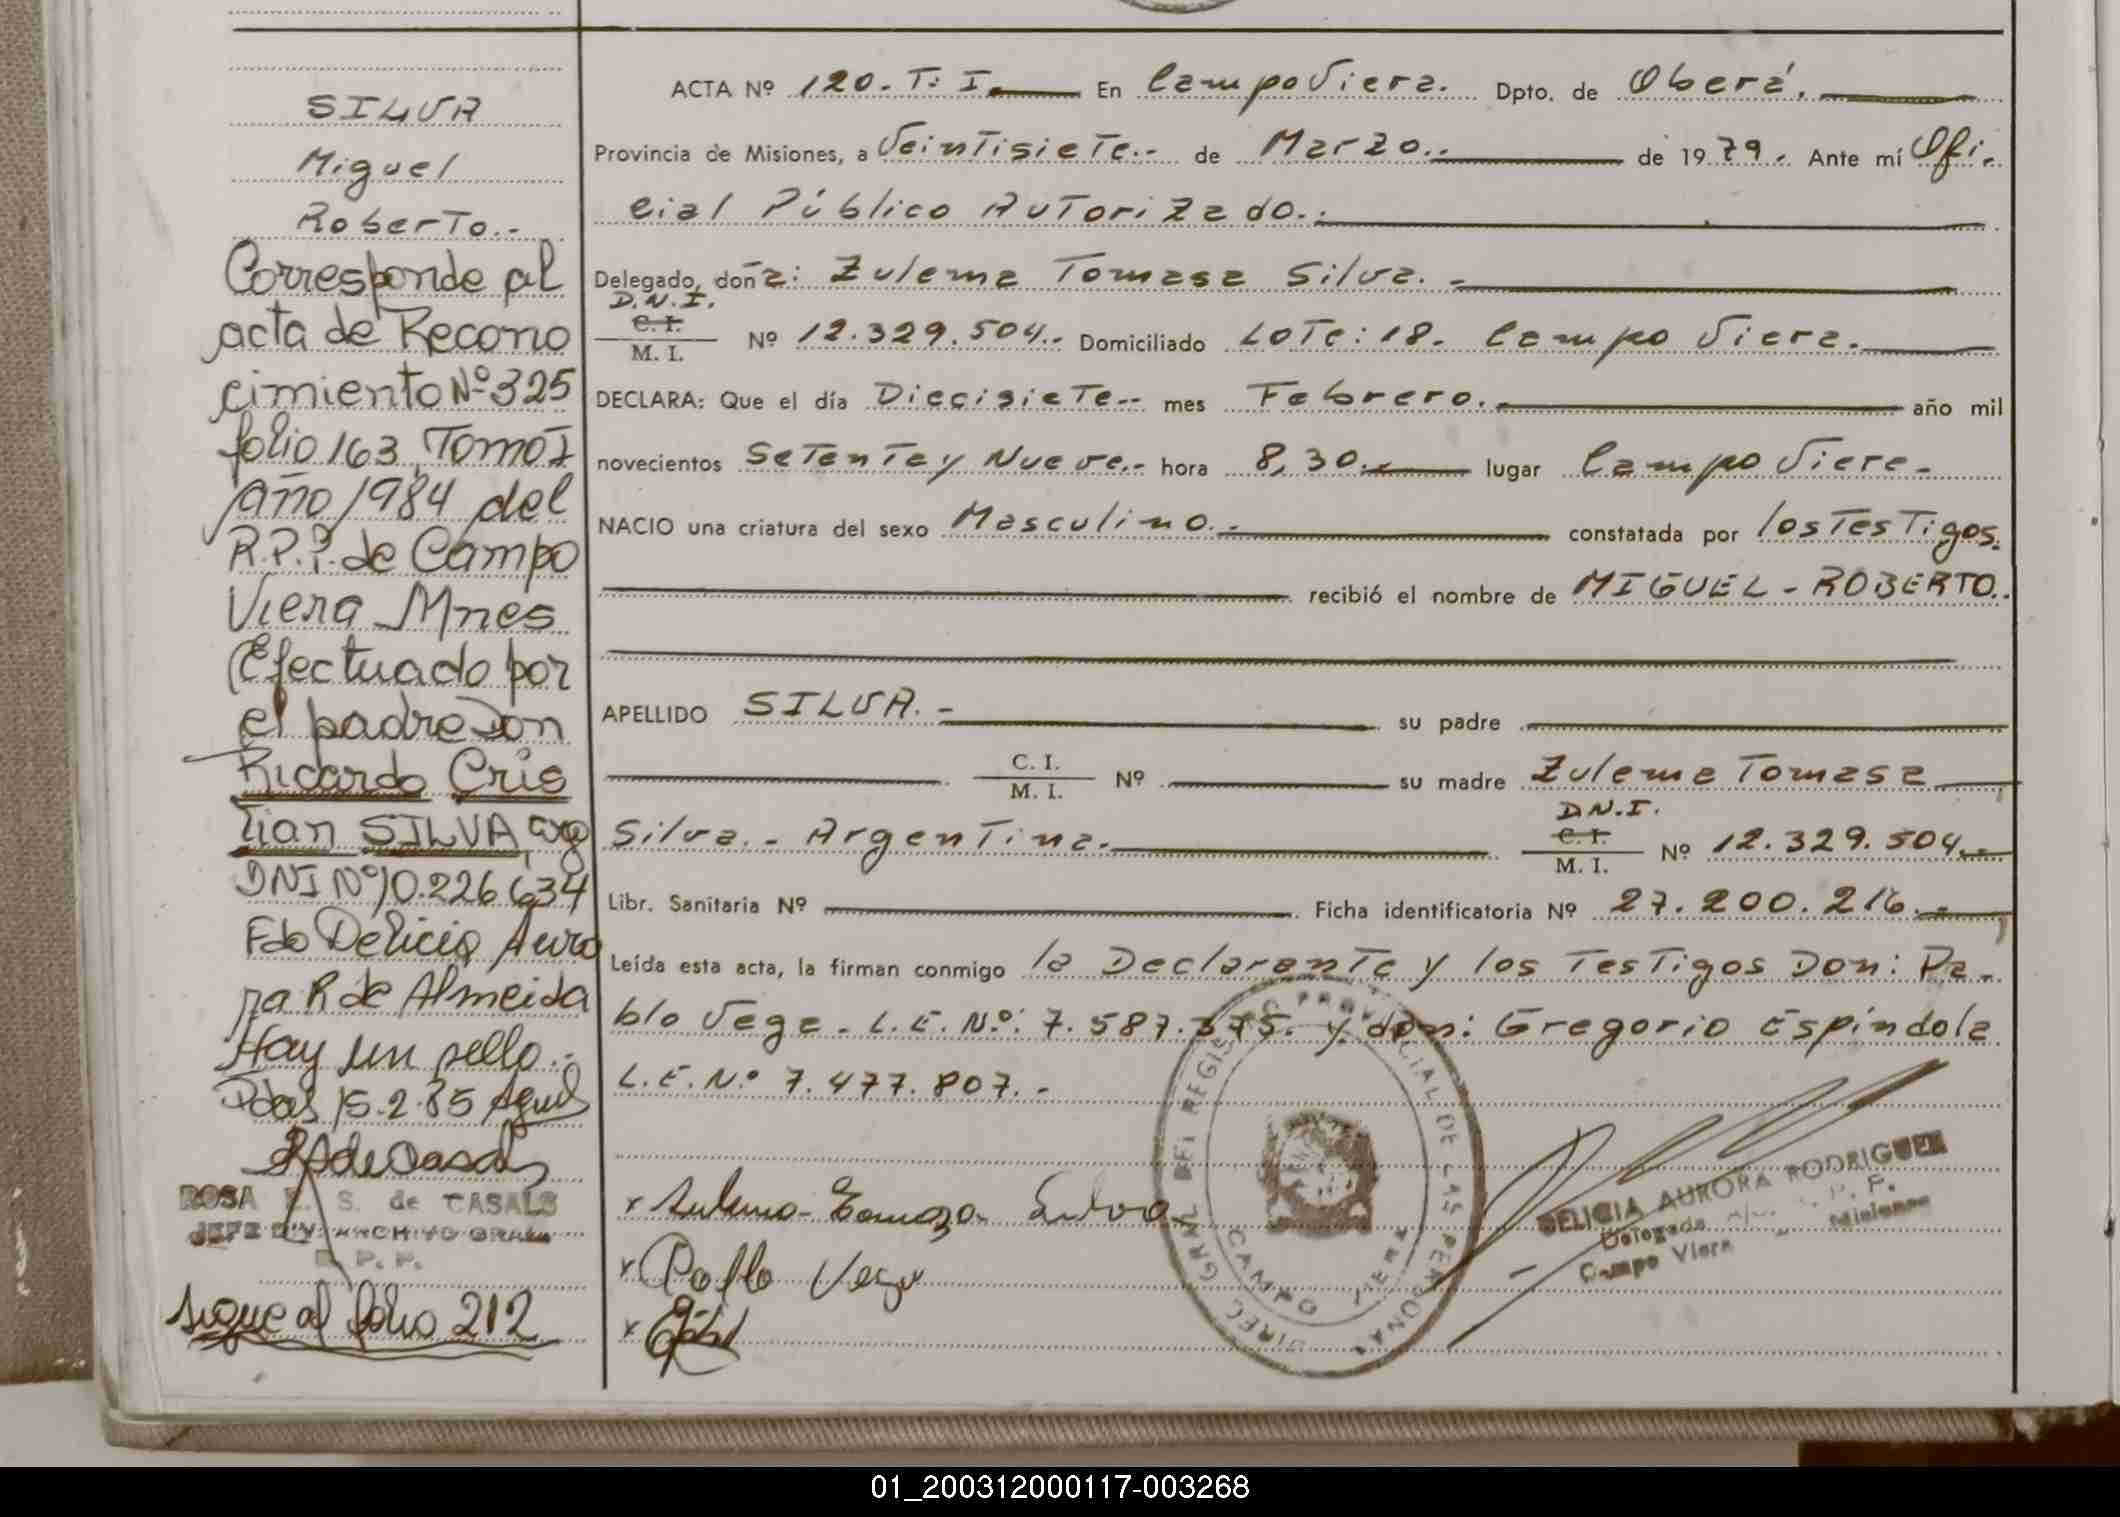 SILVA
Miguel
Roberto.-
Corresponde al
acta de Recono
cimiento Nº 325
folio 163, Tomo I
año 1984 del
R.P.P. de Campo
Viera Mnes
Efectuado por
el padre Don
Ricardo Cris
tian SILVA,
DNI Nº 10.226.634
Fdo Delicia Auro
ra R de Almeida
Hay un sello.-
Pdas 15.2.85
ROSA S. de CASALS
JEFE DIV. ARCHIVO GRAL.
R. P. P.
sigue al folio 212
ACTA Nº 120. T: I. En Campo Viera. Dpto. de Oberá.
Provincia de Misiones, a Veintisiete.- de Marzo.- de 1979. Ante mí Ofi-
cial Público Autorizado.-
Delegado, doña: Zulema Tomasa Silva.-
D.N.I.
C. I.
M. I. Nº 12.329.504.- Domiciliado Lote: 18. Campo Viera.
DECLARA: Que el día Diecisiete.- mes Febrero.- año mil
novecientos Setenta y Nueve.- hora 8,30.- lugar Campo Viera.
NACIO una criatura del sexo Masculino.- constatada por los Testigos.
recibió el nombre de MIGUEL - ROBERTO.
APELLIDO SILVA.- su padre
C. I.
M. I. Nº su madre Zulema Tomasa
D.N.I.
Silva.- Argentina. C. I.
M. I. Nº 12.329.504.-
Libr. Sanitaria Nº Ficha identificatoria Nº 27.200.216.-
Leída esta acta, la firman conmigo la Declarante y los Testigos Don: Pa-
blo Vega. L.E. Nº: 7.587.375. y don: Gregorio Espíndola
L.E. Nº 7.477.807.-
x Zulema Tomasa Silva
x Pablo Vega
x
DIREC. GRAL. DEL REGISTRO PROVINCIAL DE LAS PERSONAS
CAMPO VIERA
DELICIA AURORA RODRIGUEZ
Delegada R. P. P.
Campo Viera - Misiones
01_200312000117-003268